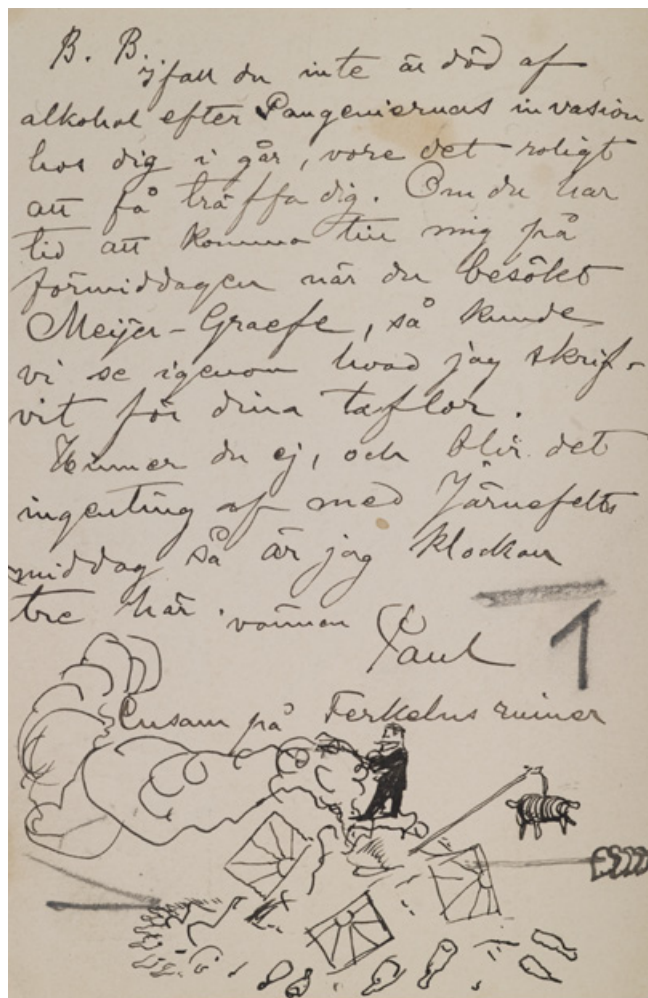 B. B.
ifall du inte är död af
alkohol efter Pangeniernas invasion
hos dig i går, vore det roligt
att få träffa dig. Om du har
tid att komma till mig på
förmiddagen när du besökt
Meijer-Graefe, så kunde
vi se igenom hvad jag skrif-
vit för dina taflor.
Hinner du ej, och blir det
ingenting af med Järnefelts
middag så är jag klockan
tre här. vännen
Paul
1
Ensam på Ferkelns ruiner